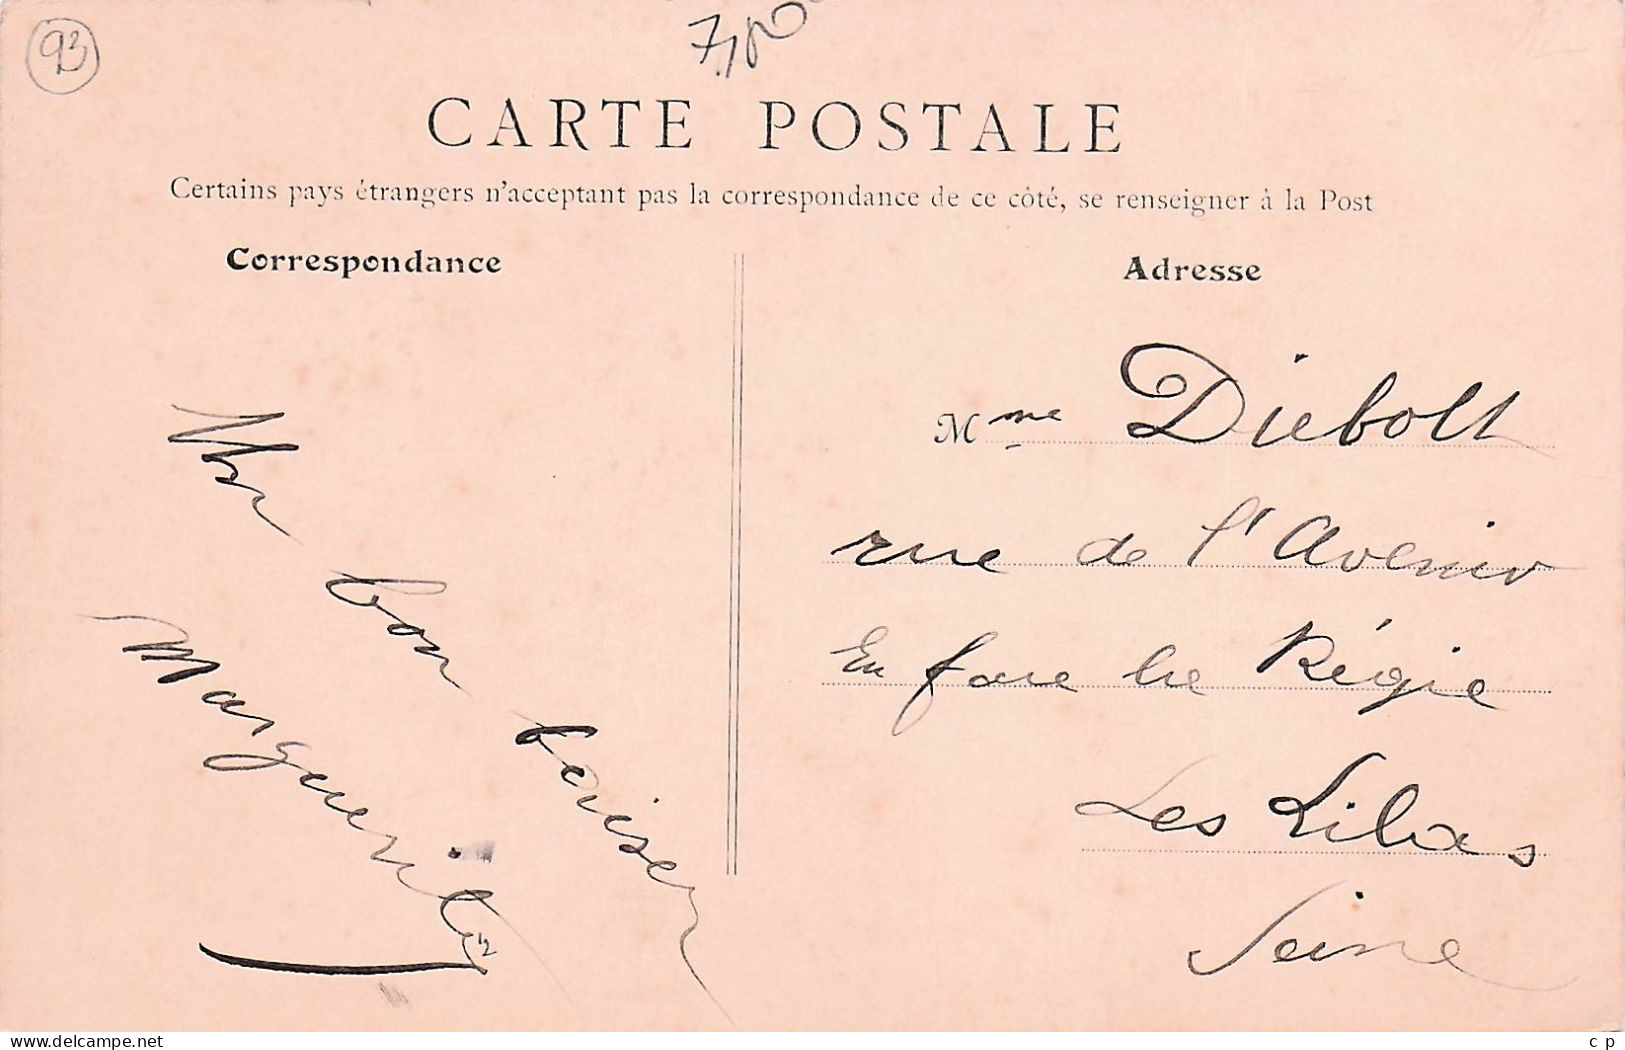 93
7,00
CARTE POSTALE
Certains pays étrangers n'acceptent pas la correspondance de ce côté, se renseigner à la Post
Correspondance
Un bon baiser
Marguerite
12
Adresse
Mme Diebolt
rue de l'Avenir
En face la Régie
Les Lilas
Seine
www.delcampe.net
c p